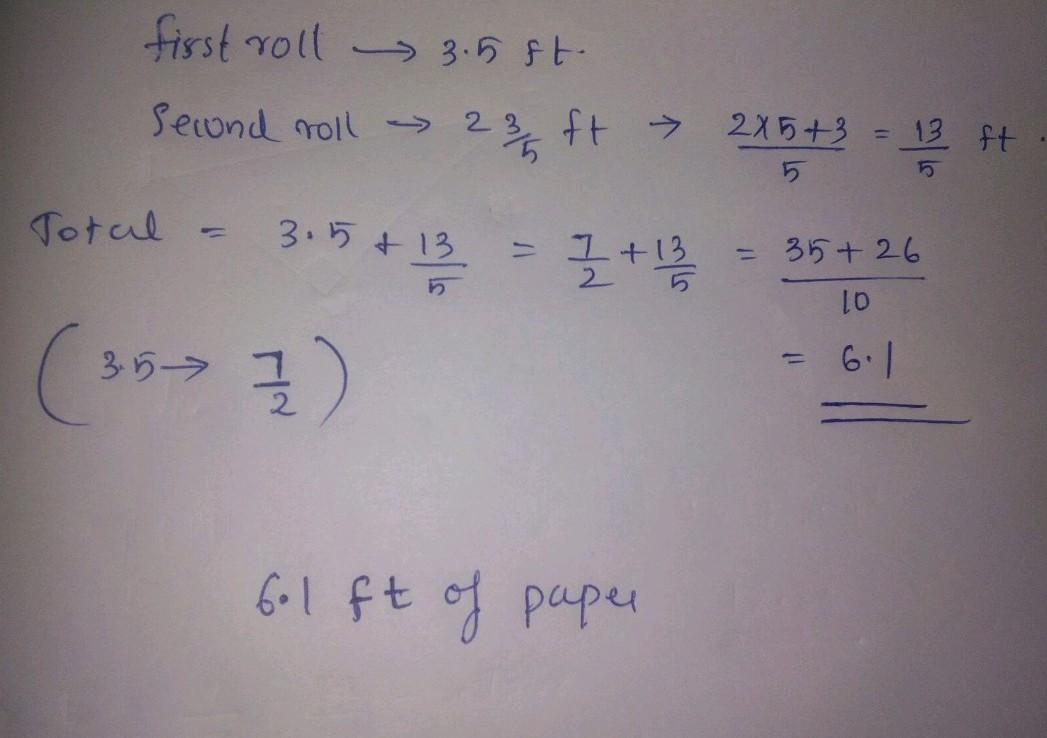 first roll → 3.5 ft.
Second roll → 2 3/5 ft → (2x5+3)/5 = 13/5 ft.
Total = 3.5 + 13/5 = 7/2 + 13/5 = (35+26)/10
(3.5 → 7/2) = 6.1
6.1 ft of paper